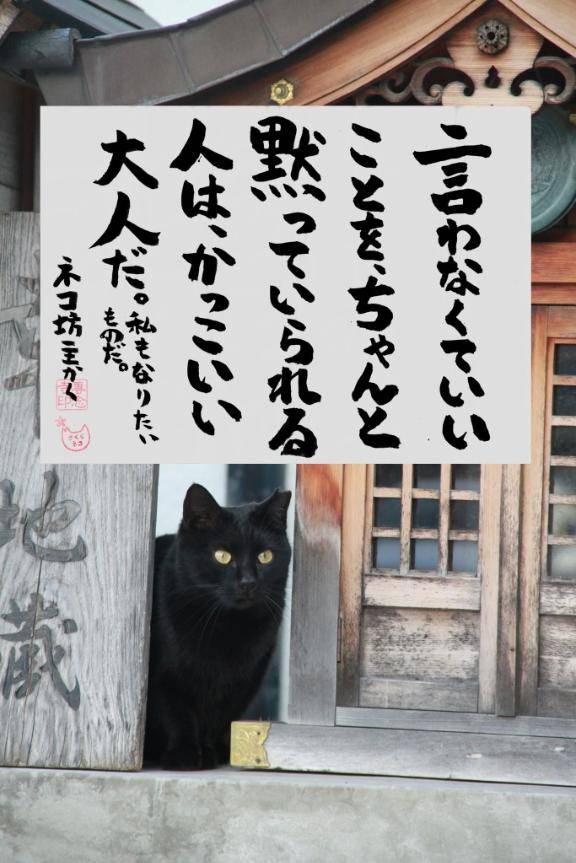 言わなくていい
ことを、ちゃんと
黙っていられる
人は、かっこいい
大人だ。
私もなりたい
ものだ。
ネコ坊主かく
さくら
ネコ
地蔵